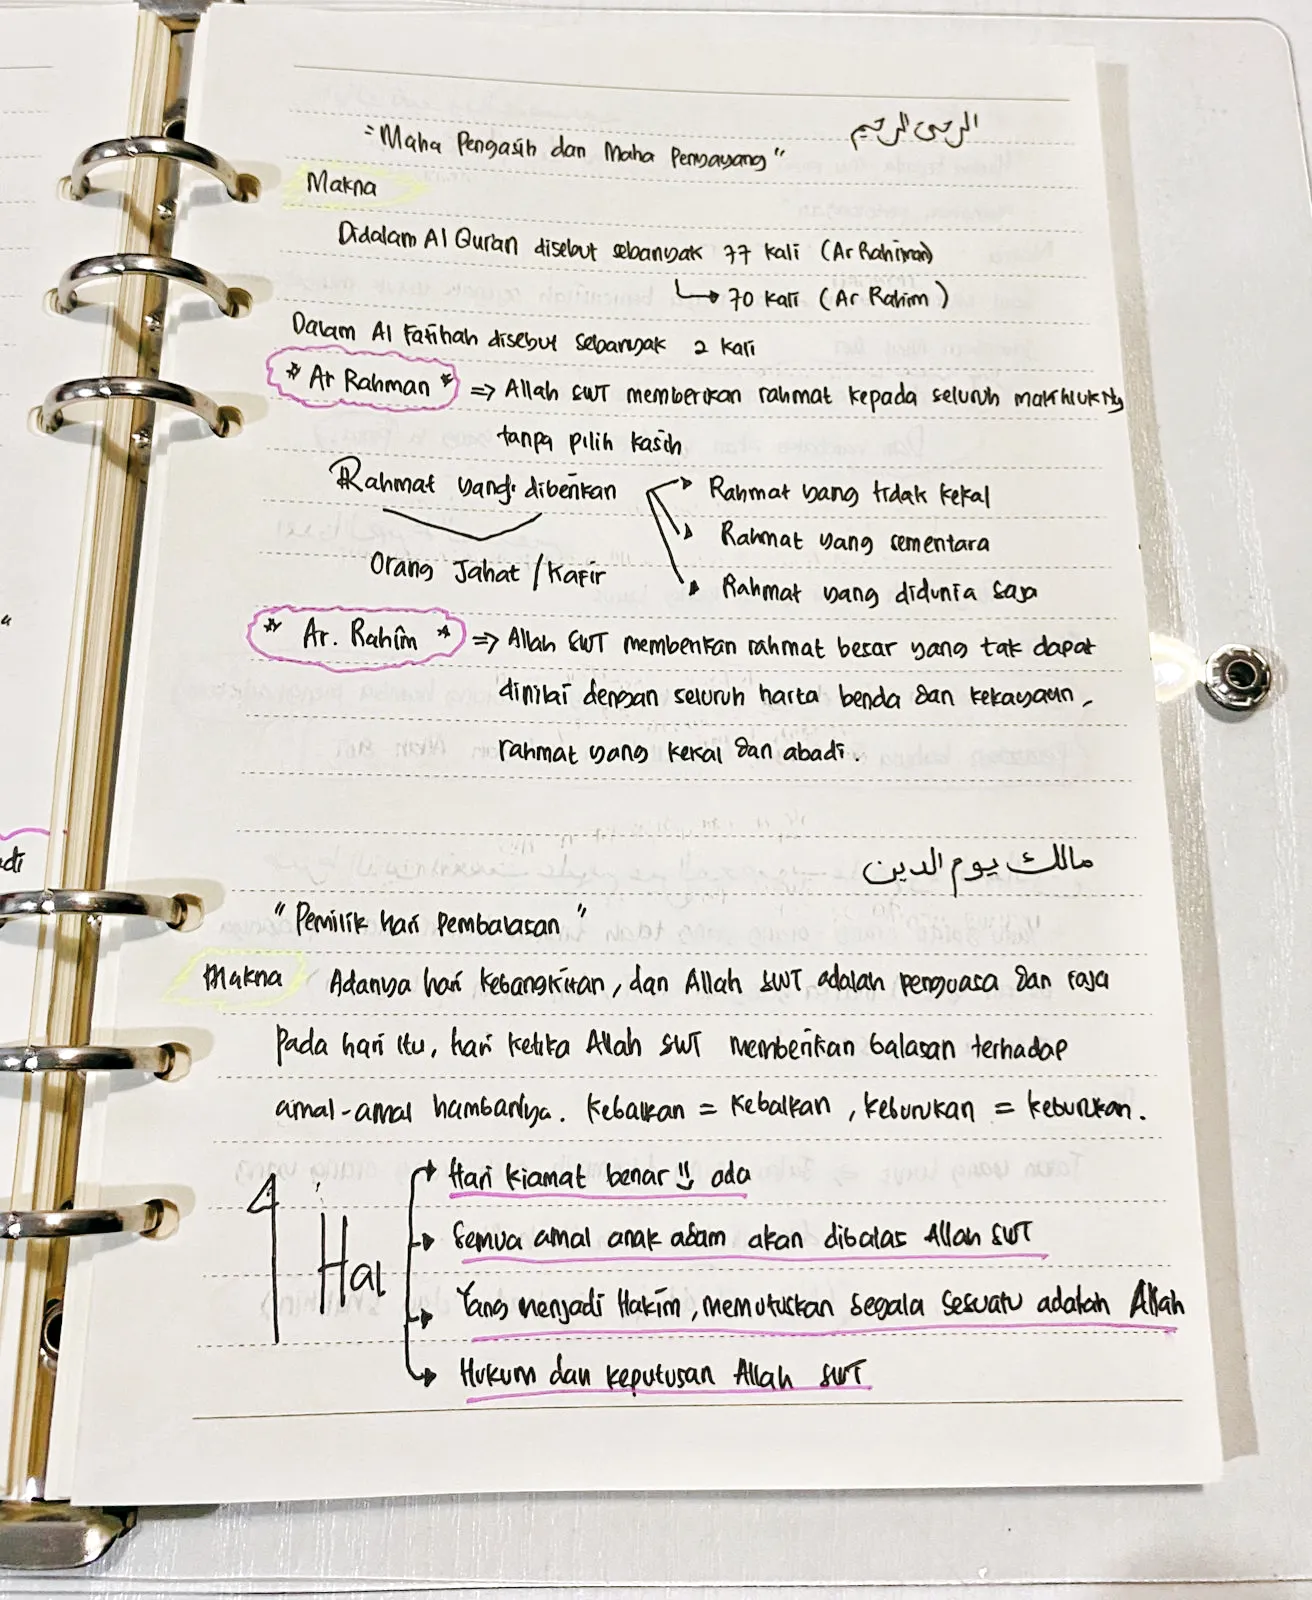 الرحمن الرحيم
"Maha Pengasih dan Maha Penyayang"
Makna
Didalam Al Quran disebut sebanyak 77 kali (Ar Rahman)
↳ 70 kali (Ar Rahim)
Dalam Al Fatihah disebut sebanyak 2 kali
* Ar Rahman * => Allah SWT memberikan rahmat kepada seluruh makhlukNy
tanpa pilih kasih
Rahmat yang diberikan → Rahmat yang tidak kekal
→ Rahmat yang sementara
Orang Jahat / Kafir → Rahmat yang didunia saja
* Ar. Rahim * => Allah SWT memberikan rahmat besar yang tak dapat
dinilai dengan seluruh harta benda dan kekayaan,
rahmat yang kekal dan abadi.
مالك يوم الدين
"Pemilik hari Pembalasan"
Makna Adanya hari kebangkitan, dan Allah SWT adalah penguasa dan raja
pada hari itu, hari ketika Allah SWT memberikan balasan terhadap
amal-amal hambanya. Kebaikan = Kebaikan, keburukan = keburukan.
4 Hal → Hari kiamat benar" ada
→ Semua amal anak adam akan dibalas Allah SWT
→ Yang menjadi Hakim, memutuskan segala sesuatu adalah Allah
→ Hukum dan keputusan Allah SWT
di